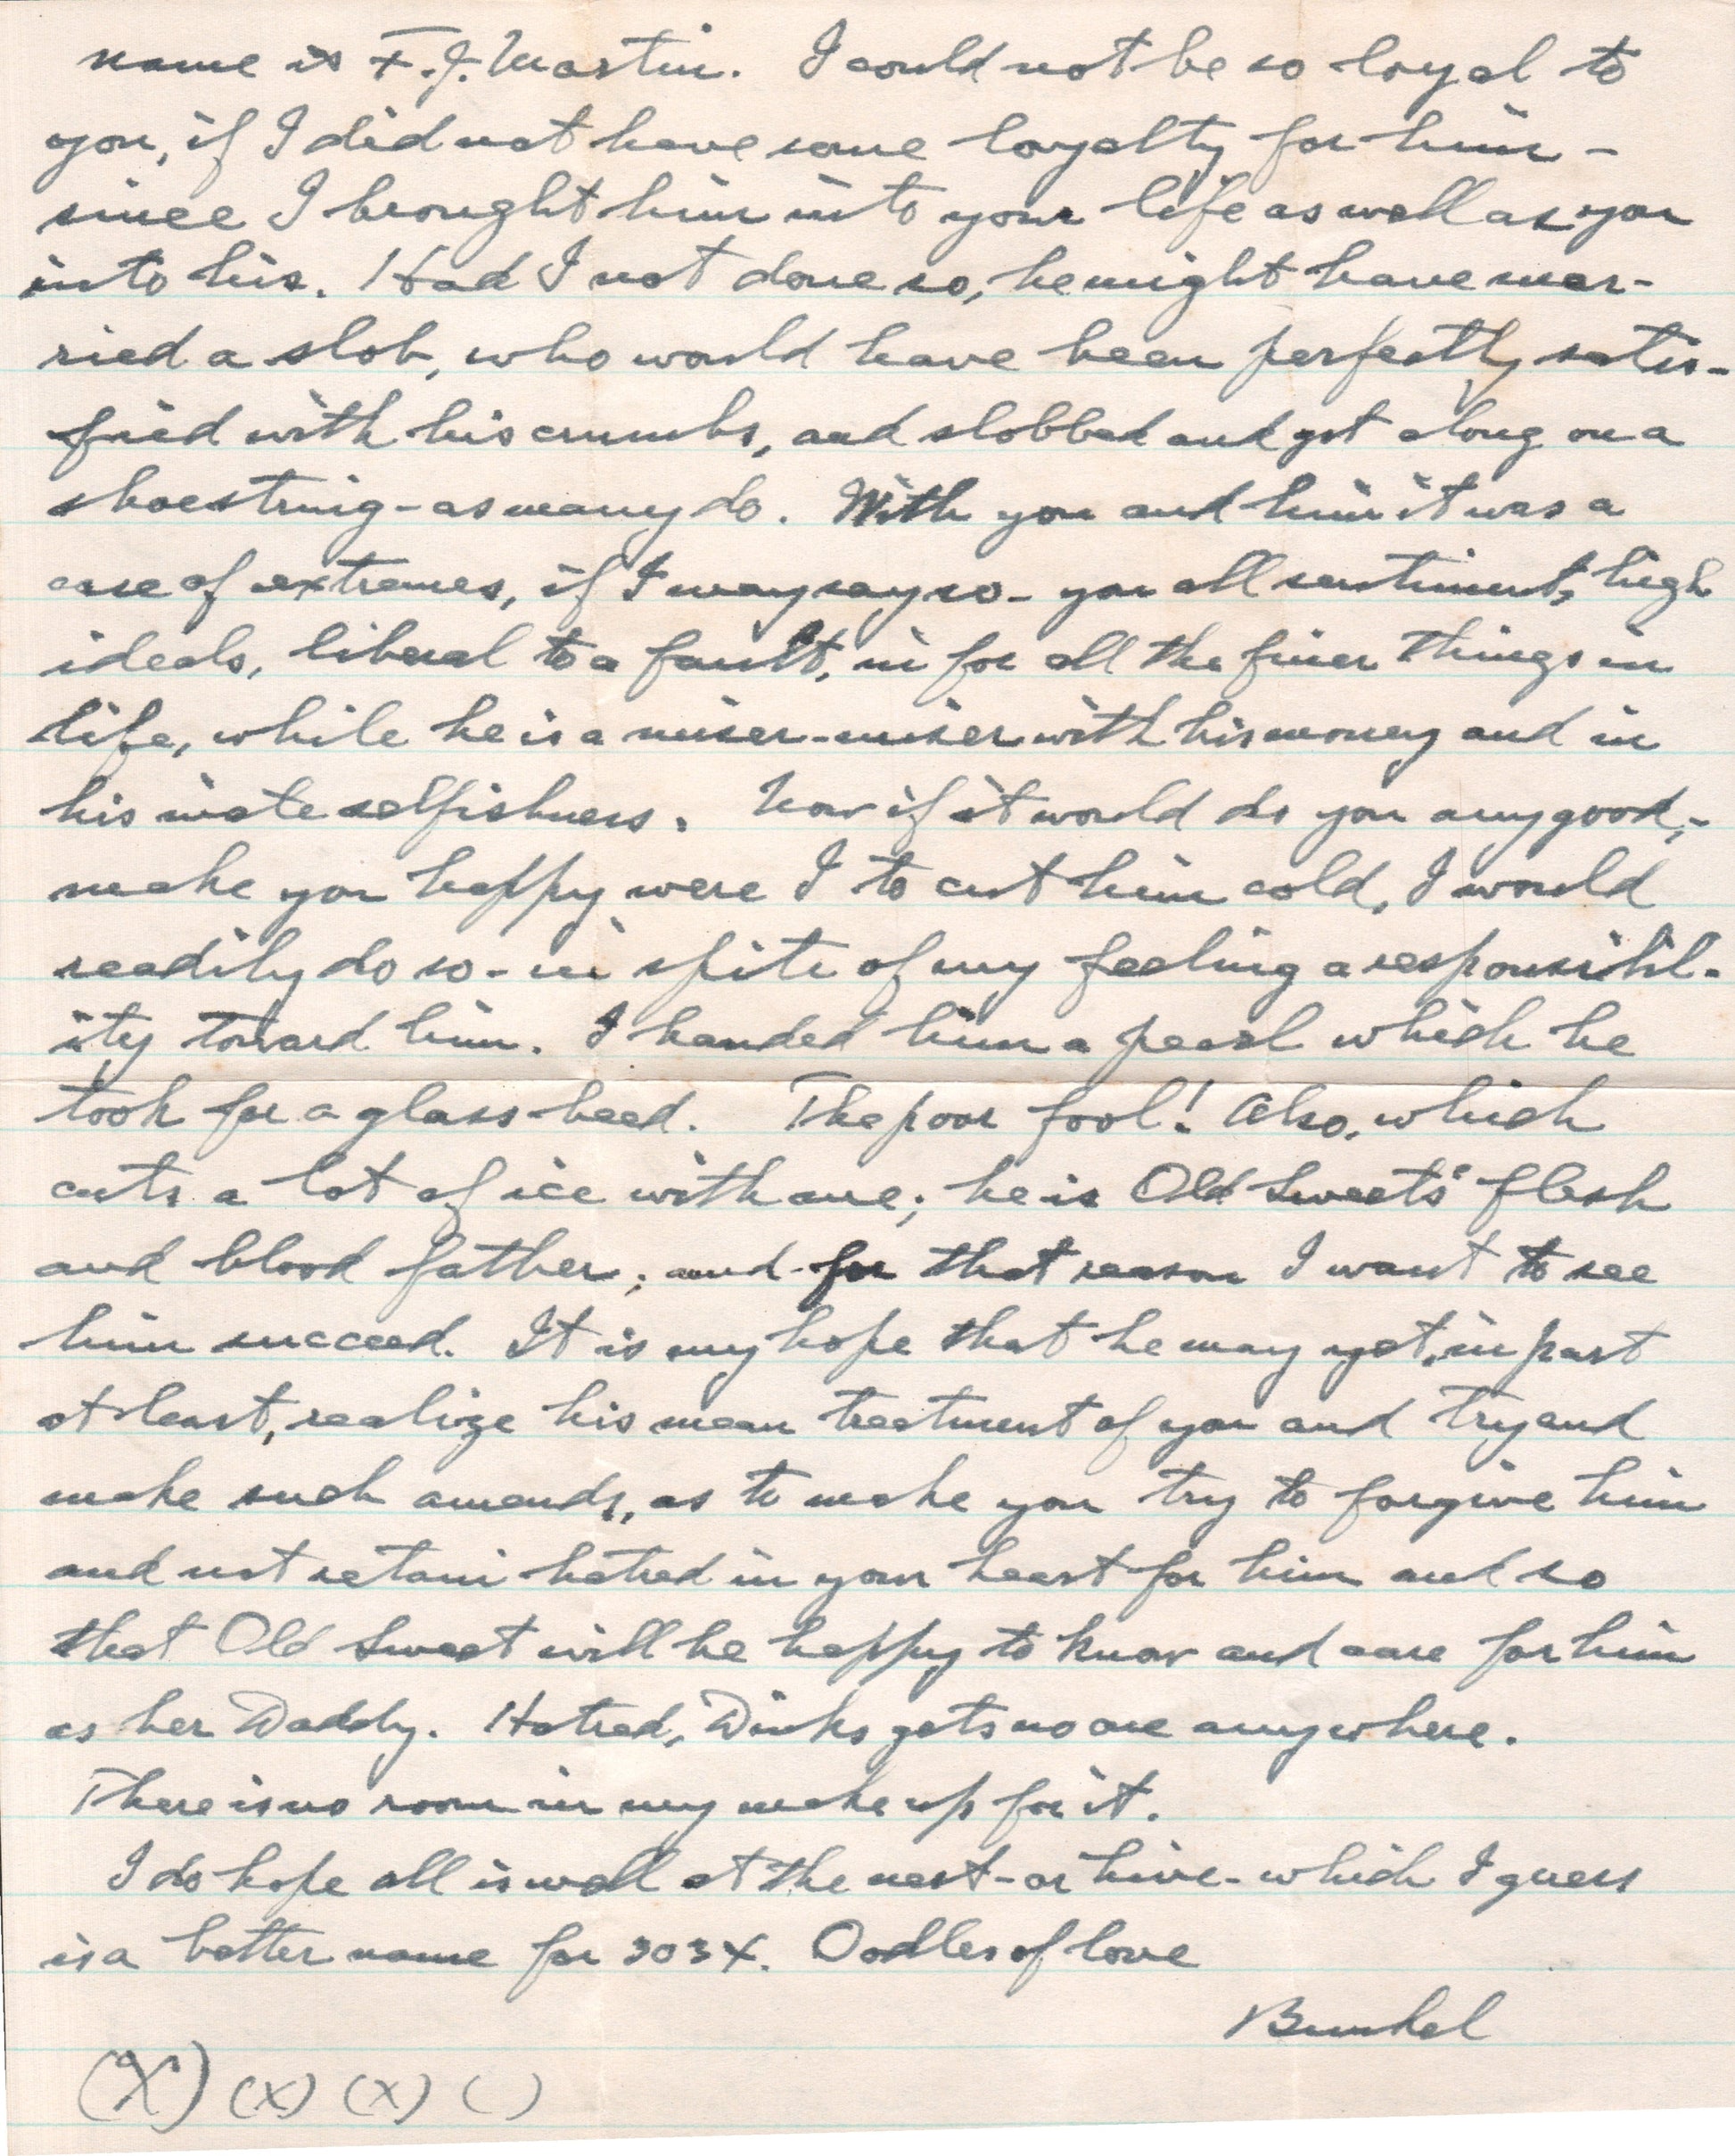 name is F. J. Martin. I could not be so loyal to
you, if I did not have some loyalty for him -
since I brought him into your life as well as you
into his. Had I not done so, he might have mar-
ried a slob, who would have been perfectly satis-
fied with his crumbs, and slobbed and got along on a
shoestring - as many do. With you and him it was a
case of extremes, if I may say so - you all sentiment, high
ideals, liberal to a fault, in for all the finer things in
life, while he is a miser - miser with his money and in
his inate selfishness. Now if it would do you any good, -
make you happy were I to cut him cold, I would
readily do so - in spite of my feeling a responsibil-
ity toward him. I handed him a pearl which he
took for a glass bead. The poor fool! Also, which
cuts a lot of ice with me; he is Old Sweets' flesh
and blood father; and for that reason I want to see
him succeed. It is my hope that he may yet, in part
at least, realize his mean treatment of you and try and
make such amends, as to make you try to forgive him
and not retain hatred in your heart for him and so
that Old Sweet will be happy to know and care for him
as her Daddy. Hatred, Dinks gets no one anywhere.
There is no room in my make up for it.
I do hope all is well at the nest - or hive - which I guess
is a better name for 303X. Oodles of love
Bunkel
(X) (X) (X) ( )